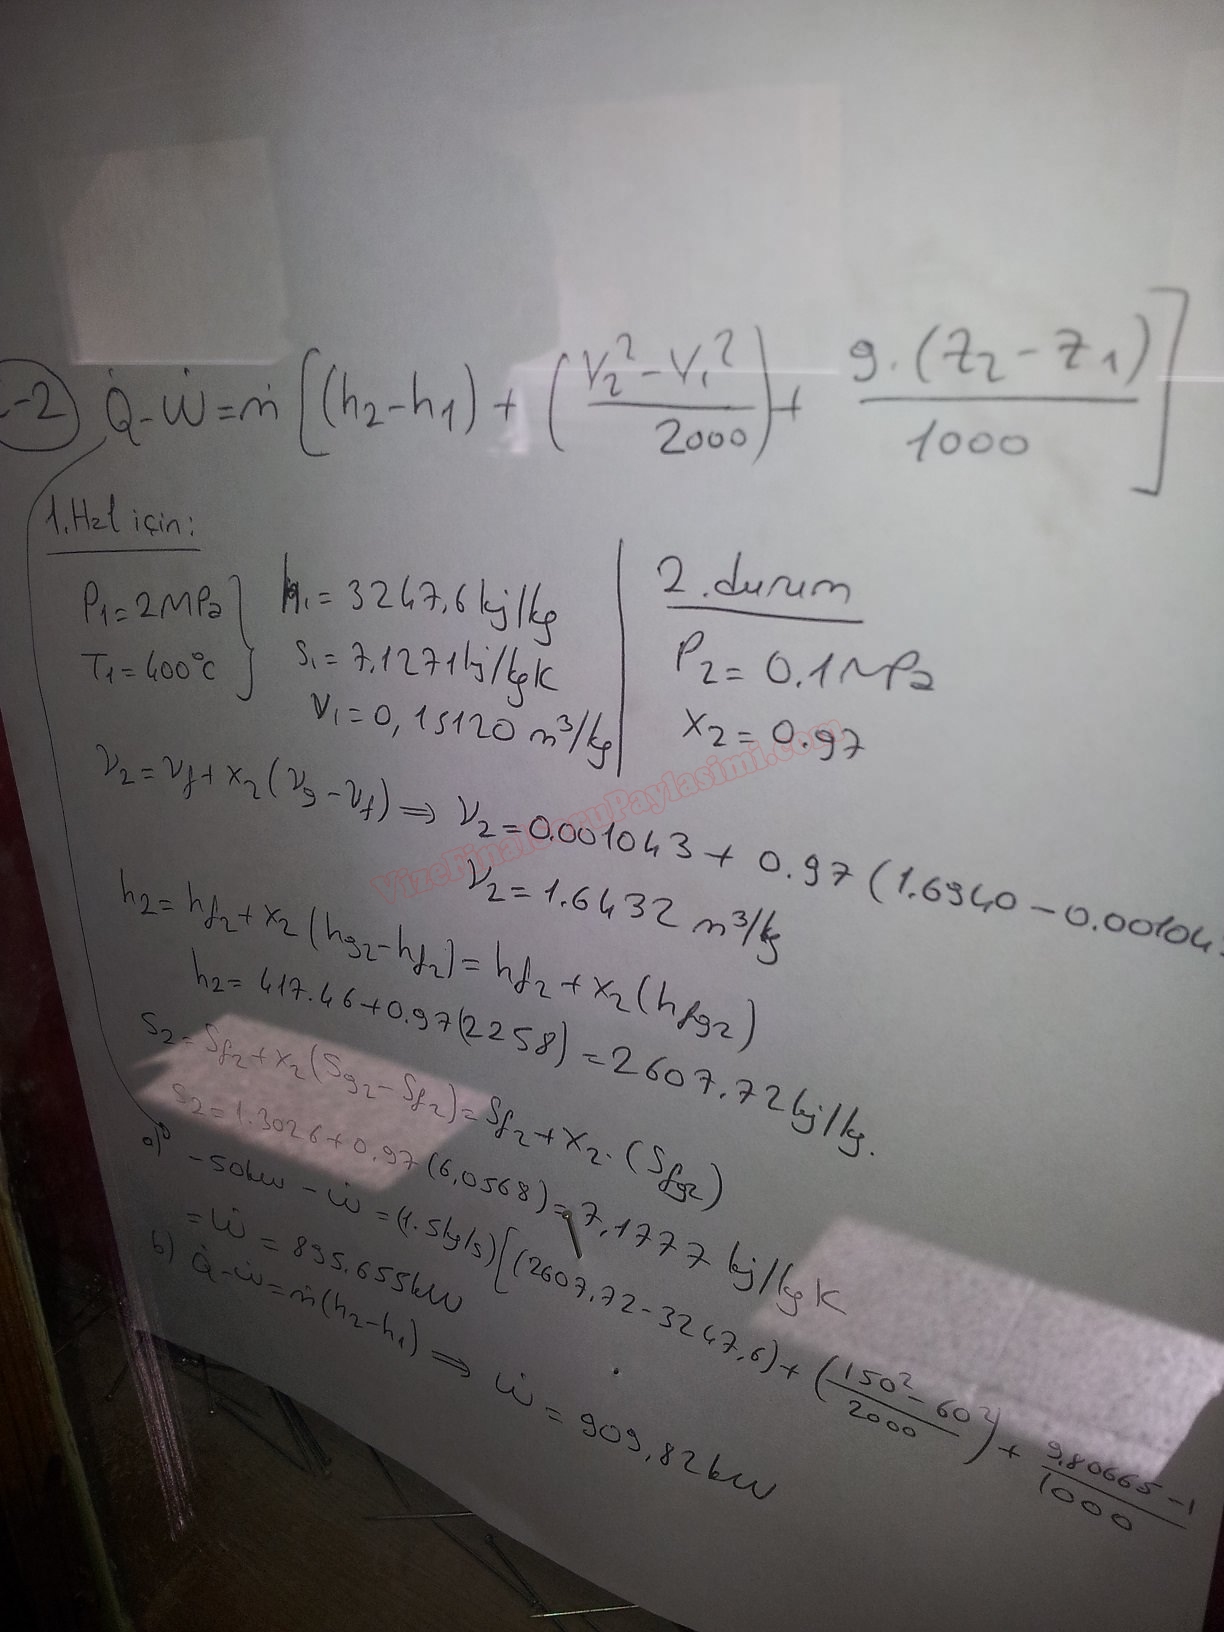 -2) Q̇-Ẇ=ṁ[(h₂-h₁)+((V₂²-V₁²)/2000)+(g.(z₂-z₁)/1000)]
1.Hal için:
P₁=2MPa
T₁=400°C
h₁=3247,6kj/kg
s₁=7,1271kj/kgK
v₁=0,15120 m³/kg
2.durum
P₂=0.1MPa
x₂=0.97
v₂=vf+x₂(vg-vf)⇒ v₂=0.001043+0.97(1.6940-0.00104
v₂=1.6432 m³/kg
h₂=hf₂+x₂(hg₂-hf₂)=hf₂+x₂(hfg₂)
h₂=417.46+0.97(2258)=2607.72kj/kg.
s₂=sf₂+x₂(sg₂-sf₂)=sf₂+x₂.(sfg₂)
s₂=1.3026+0.97(6,0568)=7,1777 kj/kgK
a) -50kw-ẇ=(1.5kg/s)[(2607,72-3247,6)+((150²-60²)/2000)+(9,80665-1/1000)
=Ẇ=895.655kW
b) Q̇-ẇ=ṁ(h₂-h₁)⇒ẇ=909,82kW
VizeFinalSoruPaylasimi.com